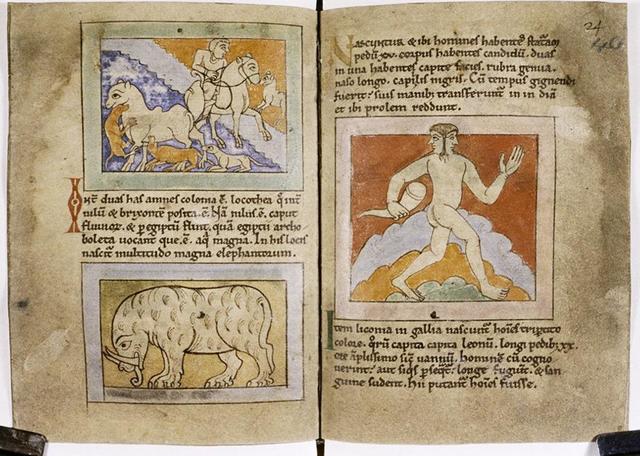 Int̄ duas has amnes colonia ē. locothea q̄ int̄
nilū & brixontē posita. ē. Nā nilus. ē. caput
fluuioȝ. & ꝑ egiptū fluit. quā egiptii archo
boleta uocant que. ē. aq̄ magna. In his locis
nascit̄ multitudo magna elephantorum.
24
Nascuntur & ibi homines habentes statā
pedū xv. corpus habentes candidū. duas
in una habentes capite facies. rubra genua.
naso longo. capillis nigris. Cū tempus gignendi
fuerit. suis manibꝰ transferunt̄ in indiā
et ibi prolem reddunt.
Item liconia in gallia nascunt̄ hoīes tripertito
colore. qͦrū capita capita leonū. longi pedibꝰ xx.
ore āplissimo sic̄ uannū. hominē cū cogno
uerint. aut siq̄s ꝑseqt̄. longe fugiunt. & san
guine sudent. Hii putant̄ hoīes fuisse.